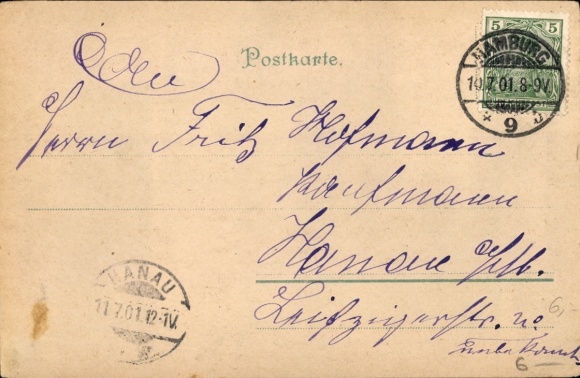 Postkarte.
5 5
HAMBURG
10.7.01. 8-9V.
* 9 J
Herrn Fritz Hofmann
Kaufmann
Hanau
Leipzigerstr.
unbekannt
HANAU
11.7.01. 12-1V.
6,-
6 —